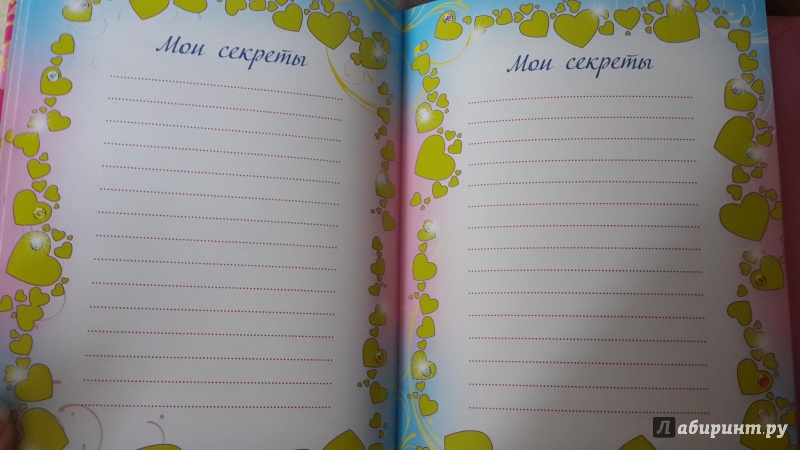 Мои секреты
Мои секреты
Лабиринт.ру